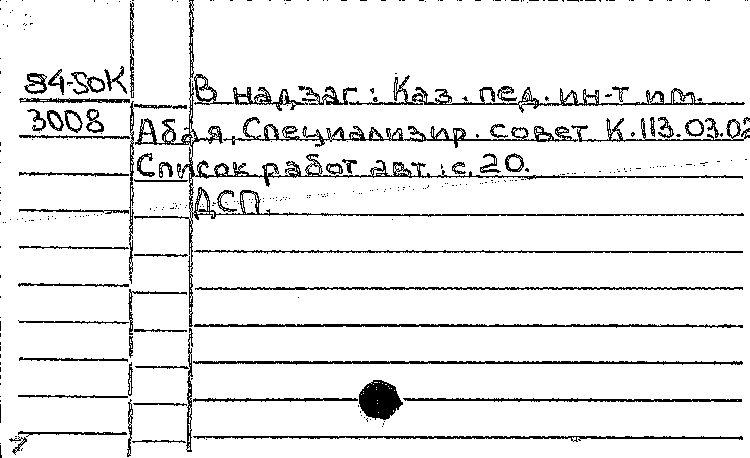 84-50К В надзаг.: Каз. пед. ин-т им.
3008 Абая, Специализир. совет К.113.03.02
Список работ авт.: с. 20.
ДСП.